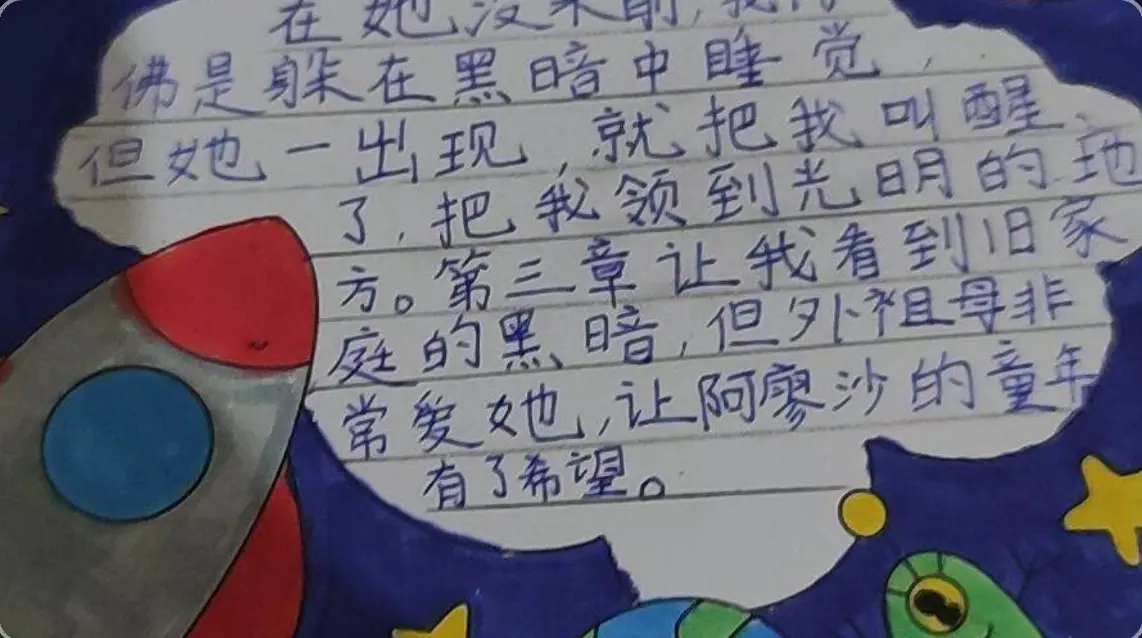 在她没来前,我
佛是躲在黑暗中睡觉,
但她一出现,就把我叫醒
了,把我领到光明的地
方。第三章让我看到旧家
庭的黑暗,但外祖母非
常爱她,让阿廖沙的童年
有了希望。